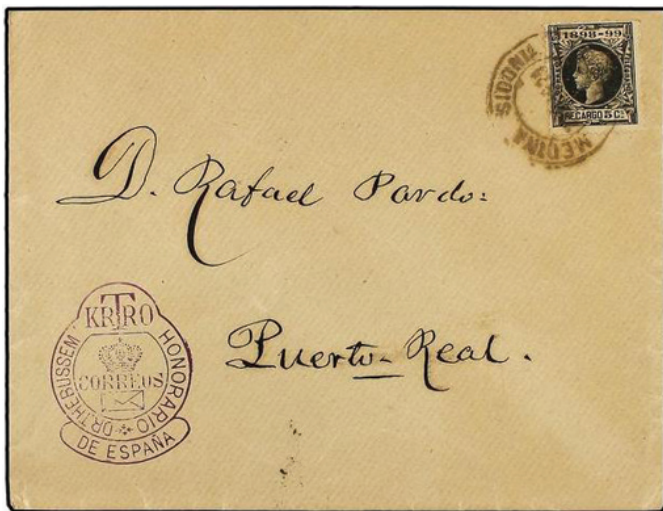 1898-99
RECARGO 5 Cs.
MEDINA SIDONIA
D. Rafael Pardo:
Puerto-Real.
KRTRO
CORREOS
DR. THEBUSSEM
HONORARIO
DE ESPAÑA